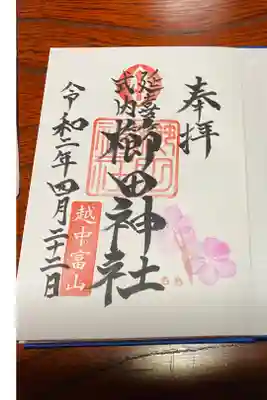 奉拝
延喜式内
櫛田神社
越中富山
令和二年四月二十二日